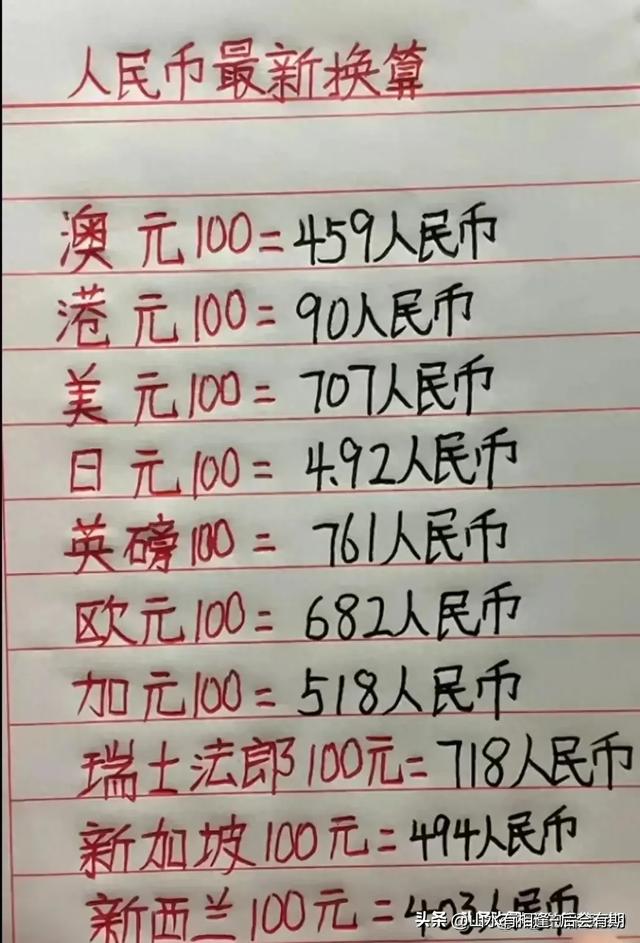 人民币最新换算
澳元100=459人民币
港元100=90人民币
美元100=707人民币
日元100=4.92人民币
英磅100=761人民币
欧元100=682人民币
加元100=518人民币
瑞士法郎100元=718人民币
新加坡100元=494人民币
新西兰100元=403人民币
头条 @山水有相逢后会有期